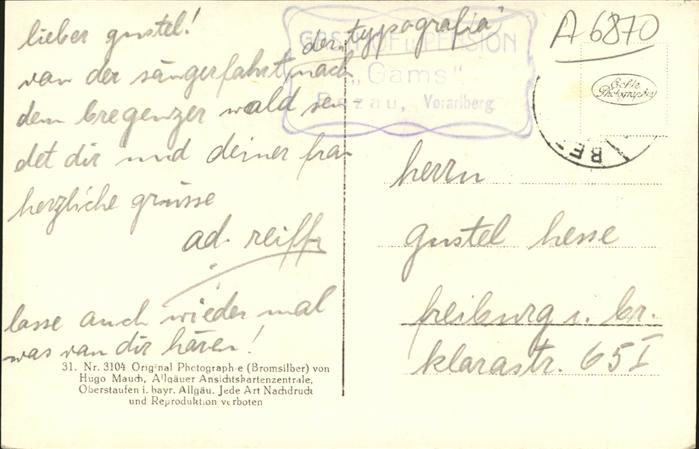 lieber gustel!
der „typografia"
von der sängerfahrt nach
dem bregenzer wald sen
det dir und deiner frau
herzliche grüsse
ad. reiff
lasse auch wieder mal
was von dir hören!
31. Nr. 3104 Original Photographie (Bromsilber) von
Hugo Mauch, Allgäuer Ansichtskartenzentrale,
Oberstaufen i. bayr. Allgäu. Jede Art Nachdruck
und Reproduktion verboten
GASTHOF u. PENSION
„Gams"
Bezau, Vorarlberg
A 6870
Echte
Photographie
BEZ
herrn
gustel hesse
freiburg i. br.
klarastr. 65 I